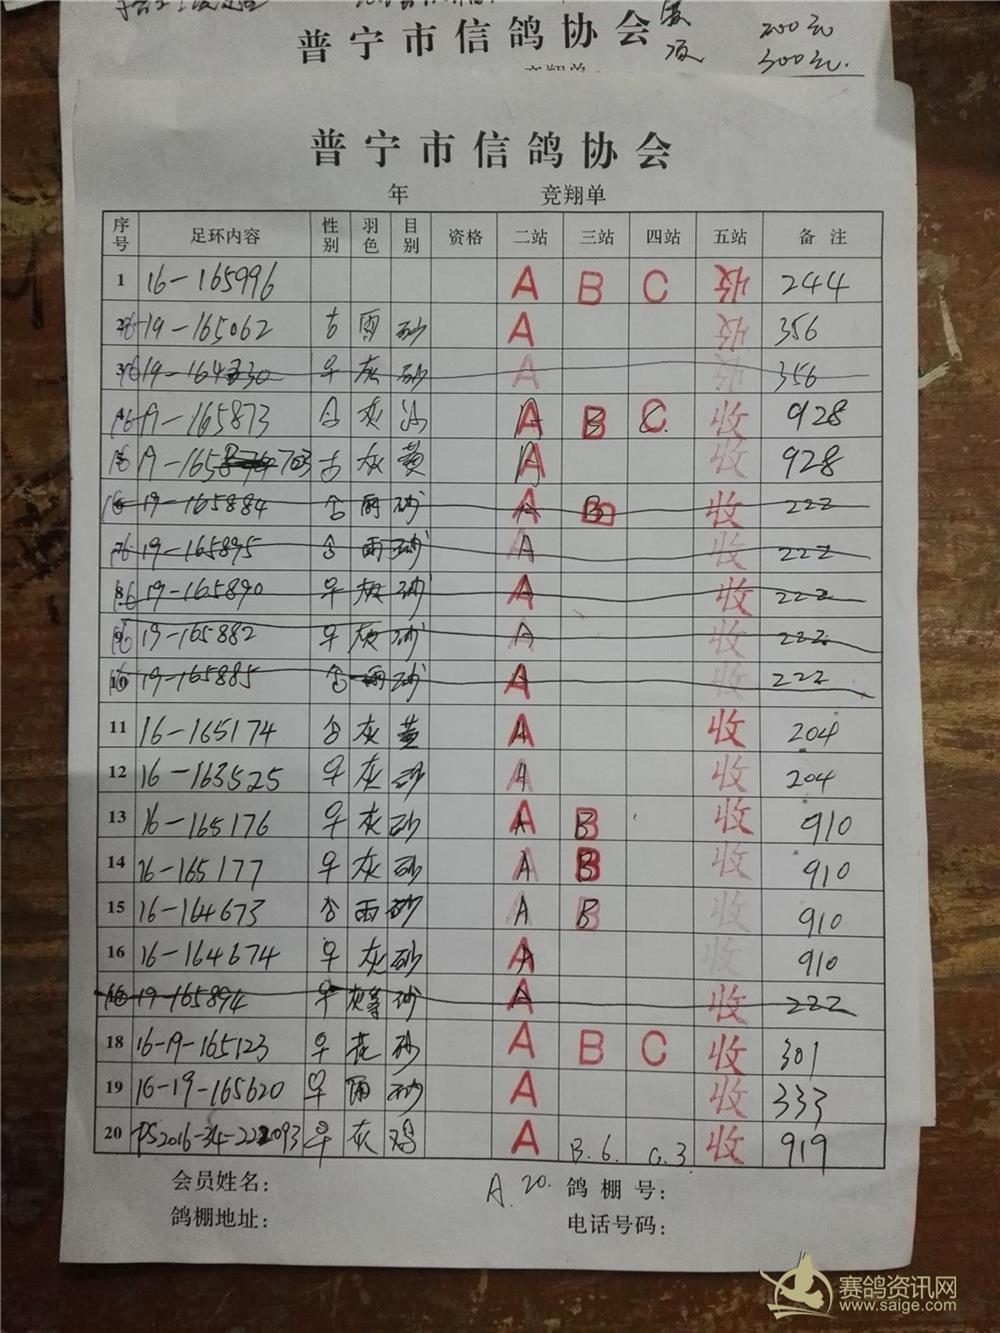 普宁市信鸽协会
200元
300元.
普宁市信鸽协会
年 竞翔单
序号 足环内容 性别 羽色 目别 资格 二站 三站 四站 五站 备注
1 16-165996 A B C 收 244
16-19-165062 雨 砂 A 收 356
灰 砂 A 收 356
16-19-165873 灰 A B C 收 928
16-19-165 703 灰 黄 A 收 928
16-19-165884 雨 砂 A B 收 222
16-19-165895 雨 砂 A 收 222
8 16-19-165890 灰 砂 A 收 222
16-19-165882 灰 砂 A 收 222
10 19-165885 雨 砂 A 收 222
11 16-165174 灰 黄 A 收 204
12 16-163525 灰 砂 A 收 204
13 16-165176 灰 砂 A B 收 910
14 16-165177 灰 砂 A B 收 910
15 16-164673 雨 砂 A B 收 910
16 16-164674 灰 砂 A 收 910
16-19-165894 砂 A 收 222
18 16-19-165123 花 砂 A B C 收 301
19 16-19-165620 雨 砂 A 收 333
20 PS2016-34-222093 灰 鸡 A B.6. C.3. 收 919
会员姓名: A.20. 鸽棚号:
鸽棚地址: 电话号码:
赛鸽资讯网
www.saige.com